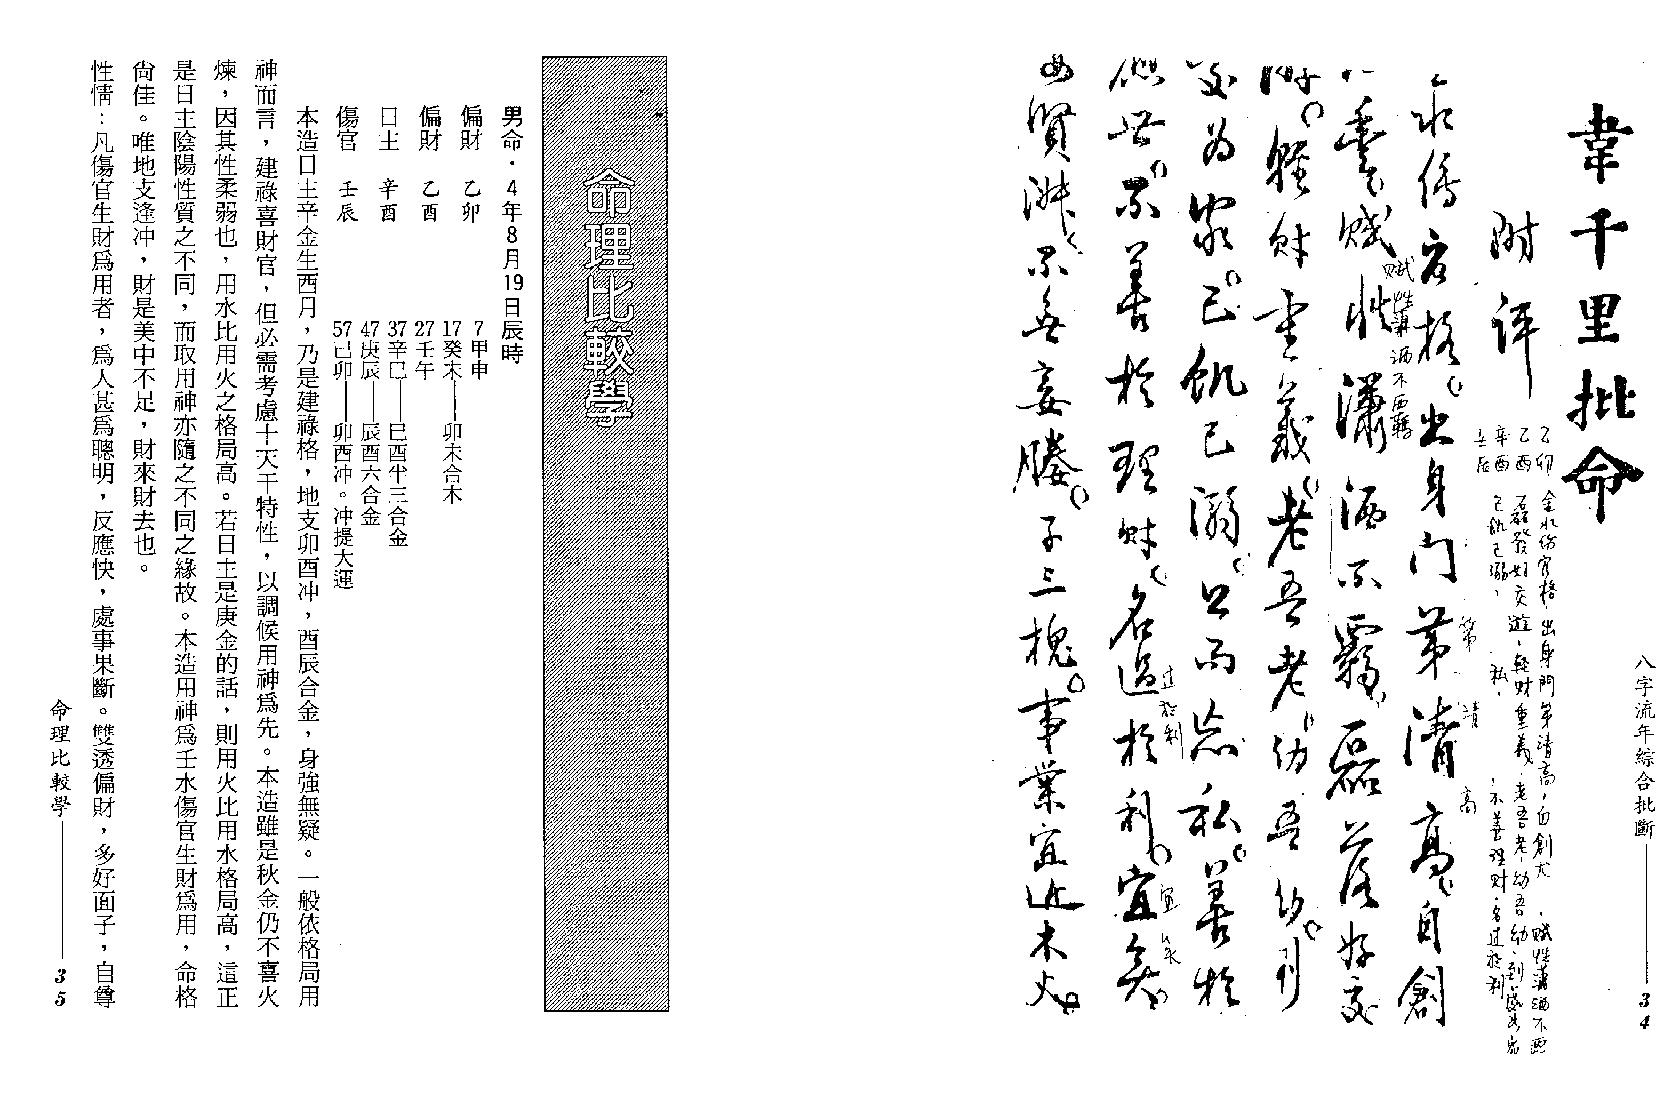 八字流年綜合批斷——34
韋千里批命
附評
乙卯 金水傷官格，出身門第清高，自創 ，賦性瀟洒不羈
乙酉 交遊，輕財重義，老吾老幼吾幼，
辛酉 己飢己溺， 私， ，不善理財，名過於利
壬辰
傷官格。出身門第清高，自創
賦性瀟洒不羈，磊落好交
游。輕財重義，老吾老，幼吾幼。引
為家。己飢己溺。公而忘私。善於
應世，不善於理財，名過於利。宜
賢淑，不無妾媵。子三槐。事業宜近木火。
命理比較學
男命．4年8月19日辰時
偏財 乙卯 7甲申
偏財 乙酉 17癸未——卯未合木
27壬午
日主 辛酉 37辛巳——巳酉半三合金
47庚辰——辰酉六合金
傷官 壬辰 57己卯——卯酉冲。冲提大運
本造日主辛金生酉月，乃是建祿格，地支卯酉冲，酉辰合金，身強無疑。一般依格局用
神而言，建祿喜財官，但必需考慮十天干特性，以調候用神爲先。本造雖是秋金仍不喜火
煉，因其性柔弱也，用水比用火之格局高。若日主是庚金的話，則用火比用水格局高，這正
是日主陰陽性質之不同，而取用神亦隨之不同之緣故。本造用神爲壬水傷官生財爲用，命格
尙佳。唯地支逢冲，財是美中不足，財來財去也。
性情：凡傷官生財爲用者，爲人甚爲聰明，反應快，處事果斷。雙透偏財，多好面子，自尊
命理比較學——35